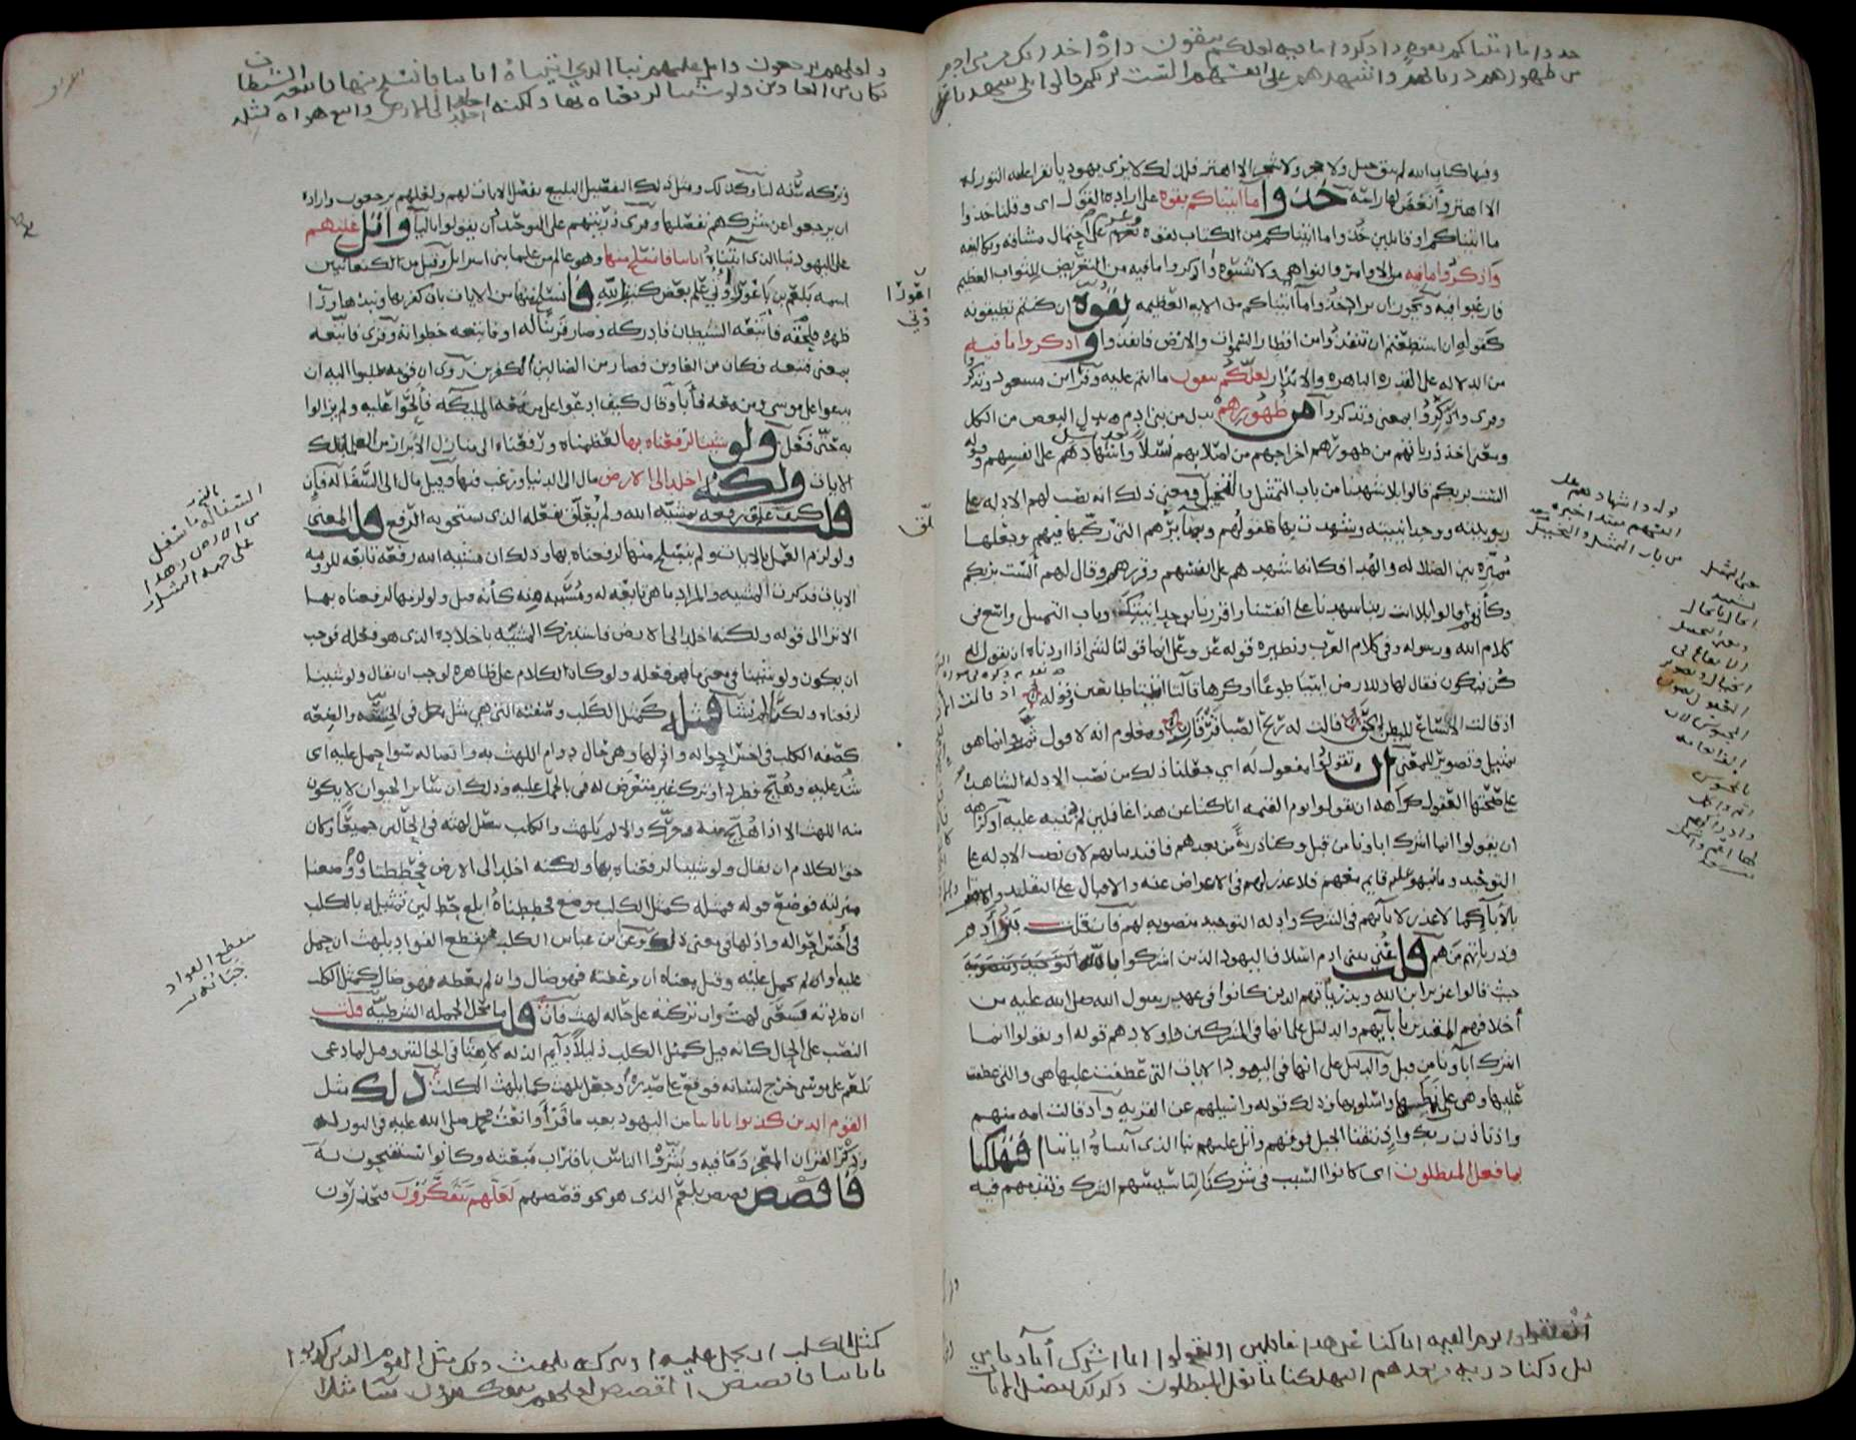 خذوا ما اتيناكم بقوه واذكروا ما فيه لعلكم تتقون واذ اخذ ربك من بنى ادم
من ظهورهم ذرياتهم واشهدهم على انفسهم الست بربكم قالوا بلى شهدنا
وفيها كتاب الله لم يبق جبل ولا حجر ولا شجر الا اهتز فلذلك لا ترى يهوديا تقرا عليه التوراه
الا اهتز وأنغض لها راسه خذوا ما آتيناكم بقوه على ارادة القول اى وقلنا خذوا
ما اتيناكم او قايلين خذوا ما اتيناكم من الكتاب بقوه وعزم على احتمال مشاقه وتكاليفه
واذكروا ما فيه من الاوامر والنواهى ولا تنسوه او اذكروا ما فيه من التعريض للثواب العظيم
فارغبوا فيه ويجوز ان يراد خذوا ما آتيناكم من الايه العظيمه بقوة ان كنتم تطيقونه
كقوله ان استطعتم ان تنفذوا من اقطار السموات والارض فانفذوا واذكروا ما فيه
من الدلاله على القدره الباهره والانذار لعلكم تتقون ما انتم عليه وقرا ابن مسعود وتذكروا
وقرى واذّكروا بمعنى وتذكروا من ظهورهم بدل من بنى ادم بدل البعض من الكل
ومعنى اخذ ذرياتهم من ظهورهم اخراجهم من اصلابهم نسلا واشهادهم على انفسهم وقوله
الست بربكم قالوا بلى شهدنا من باب التمثيل والتخييل ومعنى ذلك انه نصب لهم الادله على
ربوبيته ووحدانيته وشهدت بها عقولهم وبصايرهم التى ركبها فيهم وجعلها
مميّزه بين الضلاله والهدى فكانما شهدهم على انفسهم وقررهم وقال لهم الست بربكم
وكأنهم قالوا بلى انت ربنا شهدنا على انفسنا واقررنا بوحدانيتك وباب التمثيل واسع فى
كلام الله ورسوله وفى كلام العرب ونظيره قوله عز وعلى انما قولنا لشى اذا اردناه ان نقول له
كن فيكون فقال لها وللارض ايتيا طوعا او كرها قالتا اتينا طايعين وقوله
اذ قالت الانساع للبطن الحق قالت له ريح الصبا قرقار ومعلوم انه لا قول ثم وانما هو
تمثيل وتصوير للمعنى ان تقولوا مفعول له اى فعلنا ذلك من نصب الادله الشاهده
على صحتها العقول كراهه ان تقولوا يوم القيمه انا كنا عن هذا غافلين لم ننبه عليه او كراهه
ان يقولوا انما اشرك اباونا من قبل وكنا ذريةً من بعدهم فاقتدينا بهم لان نصب الادله على
التوحيد وما نبهوا عليه قايم معهم فلا عذر لهم فى الاعراض عنه والاقبال على التقليد والاقتدا
بالآباء كما لا عذر لابآيهم فى الشرك وادله التوحيد منصوبه لهم فان قلت بنوا آدم
وذرياتهم من هم قلت عُنى ببنى ادم اسلاف اليهود الذين اشركوا بالله
حيث قالوا عزير ابن الله وبذرياتهم الذين كانوا فى عهد رسول الله صلى الله عليه من
أخلافهم المقتدين بابآيهم والدليل على انها فى المشركين واولادهم قوله او يقولوا انما
اشرك آباونا من قبل والدليل على انها فى اليهود الايات التى عُطفت عليها هى والتى عطفت
عليها وهى على نمطها واسلوبها وذلك قوله واسيلهم عن القريه واذ قالت امه منهم
واذ تاذن ربك واذ نتقنا الجبل فوقهم واتل عليهم نبا الذى آتيناه اياتنا أفتهلكنا
بما فعل المبطلون اى كانوا السبب فى شركنا لتاسيسهم الشرك وتقدمهم فيه
يوم القيمه انا كنا عن هذا غافلين او يقولوا انما اشرك أباونا من
قبل وكنا ذريه من بعدهم افتهلكنا بما فعل المبطلون وكذلك نفصل الايات
ولعلهم يرجعون واتل عليهم نبا الذى اتيناه اياتنا فانسلخ منها فاتبعه الشيطان
فكان من الغاوين ولو شينا لرفعناه بها ولكنه اخلد الى الارض واتبع هواه فمثله
وتركه سُنّه لنا وكذلك ومثل ذلك التفصيل البليغ نفصّل الايات لهم ولعلهم يرجعون وارادة
ان يرجعوا عن شركهم نفصلها وقرى ذريتهم على التوحيد وان يقولوا باليآ واتل عليهم
على اليهود نبا الذى اتيناه اياتنا فانسلخ منها وهو عالم من علما بنى اسرايل وقيل من الكنعانيين
اسمه بلعم بن باعورا أوتى علم بعض كتب الله فانسلخ منها من الايات بان كفر بها ونبذها ورآ
ظهره فاتبعه الشيطان فلحقه فادركه وصار قرينا له او فاتبعه خطواته وقرى فاتّبعه
بمعنى فتبعه فكان من الغاوين فصار من الضالين الكافرين روى ان قومه طلبوا اليه ان
يدعوا على موسى ومن معه فأبا وقال كيف ادعوا على من معه الملايكه فألحّوا عليه ولم يزالوا
به حتى فعل ولو شينا لرفعناه بها لعظمناه ورفعناه الى منازل الابرار من العلما بتلك
الايات ولكنه اخلد الى الارض مال الى الدنيا ورغب فيها وقيل مال الى السفاله فان
قلت كيف علق رفعه بمشيّه الله ولم يُعلّق بفعله الذى يستحق به الرفع قلت المعنى
ولو لزم العمل بالايات ولم ينسلخ منها لرفعناه بها وذلك ان مشيه الله رفعه تابعه للزومه
الايات فذكرت المشيه والمراد ما هى تابعه له ومسببه عنه كأنه قيل ولو لزمها لرفعناه بها
الا ترا الى قوله ولكنه اخلد الى الارض فاستدرك المشيّه باخلاده الذى هو فعله فوجب
ان يكون ولو شينا فى معنى ما هو فعله ولو كان الكلام على ظاهره لوجب ان يقال ولو شينا
لرفعناه ولكنا لم نشأ فمثله كمثل الكلب وصفته التى هى مثل فى الخسّه والضعه
كصفه الكلب فى اخسّ احواله واذلها وهى حال دوام اللهث به واتصاله سوا حُمل عليه اى
شُد عليه وهُيّج فطرد او ترك غير متعرض له فى بالحمل عليه وذلك ان ساير الحيوان لا يكون
منه اللهث الا اذا هُيّج منه وحرّك والا لم يلهث والكلب يتصل لهثه فى الحالين جميعا وكان
حق الكلام ان يقال ولو شينا لرفعناه بها ولكنه اخلد الى الارض فحططناه ووضعنا
منزلته فوضع قوله فمثله كمثل الكلب موضع فحططناه ابلغ حط لين تمثيله بالكلب
فى أخسّ احواله واذلها فى معنى ذلك وعن ابن عباس الكلب منقطع الفواد يلهث ان حمل
عليه او ان لم يحمل عليه وقيل معناه ان وعظته فهو ضال وان لم تعظه فهو ضال كمثل الكلب
ان طردته فسعى لهث وان تركته على حاله لهث فان قلت ما محل الجمله الشرطيّه قلت
النصب على الحال كانه قيل كمثل الكلب ذليلا دآيم الذله لاهثا فى الحالتين وقيل لما دعى
بلعم على موسى خرج لسانه فوقع على صدره وجعل يلهث كما يلهث الكلب ذلك مثل
القوم الذين كذبوا باياتنا من اليهود بعد ما قرأوا نعت محمد صلى الله عليه فى التوراه
وذكر القران المعجز وما فيه وبشّروا الناس باقتراب مبعثه وكانوا يستفتحون به
فاقصص قصص بلعم الذى هو نحو قصصهم لعلهم يتفكرون فيحذرون
كمثل الكلب ان تحمل عليه او تتركه يلهث ذلك مثل القوم الذين كذبوا
باياتنا فاقصص القصص لعلهم يتفكرون سآ مثلا